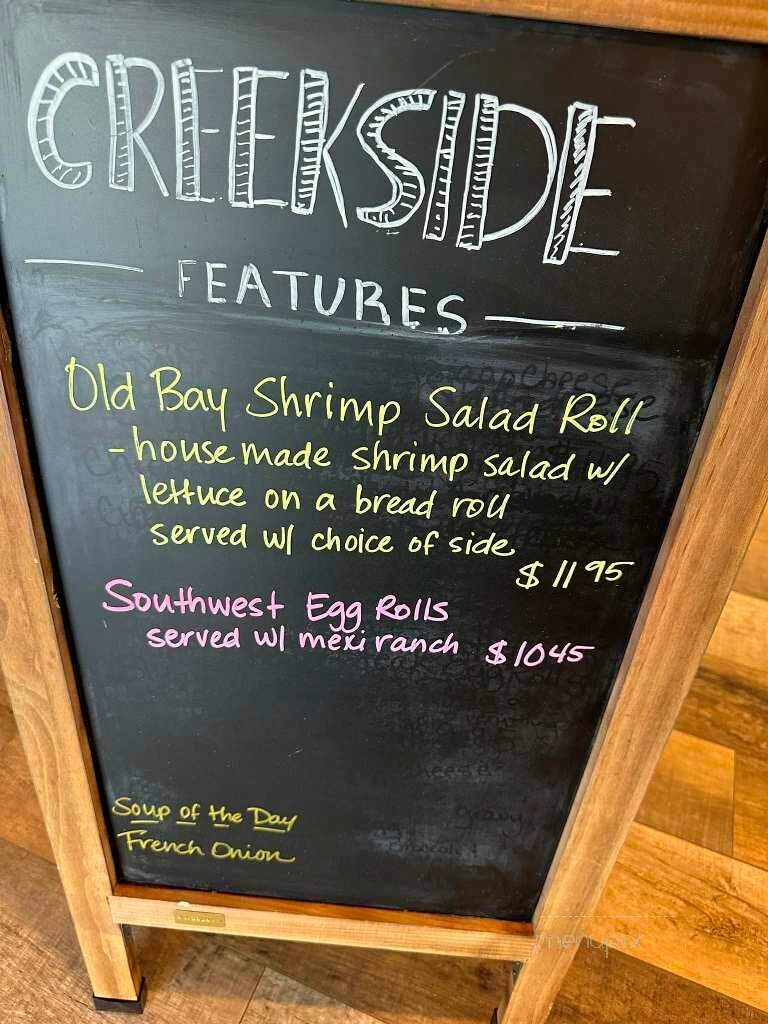 CREEKSIDE
FEATURES
Old Bay Shrimp Salad Roll
- house made shrimp salad w/
lettuce on a bread roll
served w/ choice of side
$ 11 95
Southwest Egg Rolls
served w/ mexi ranch $ 10 45
Soup of the Day
French Onion
menupix